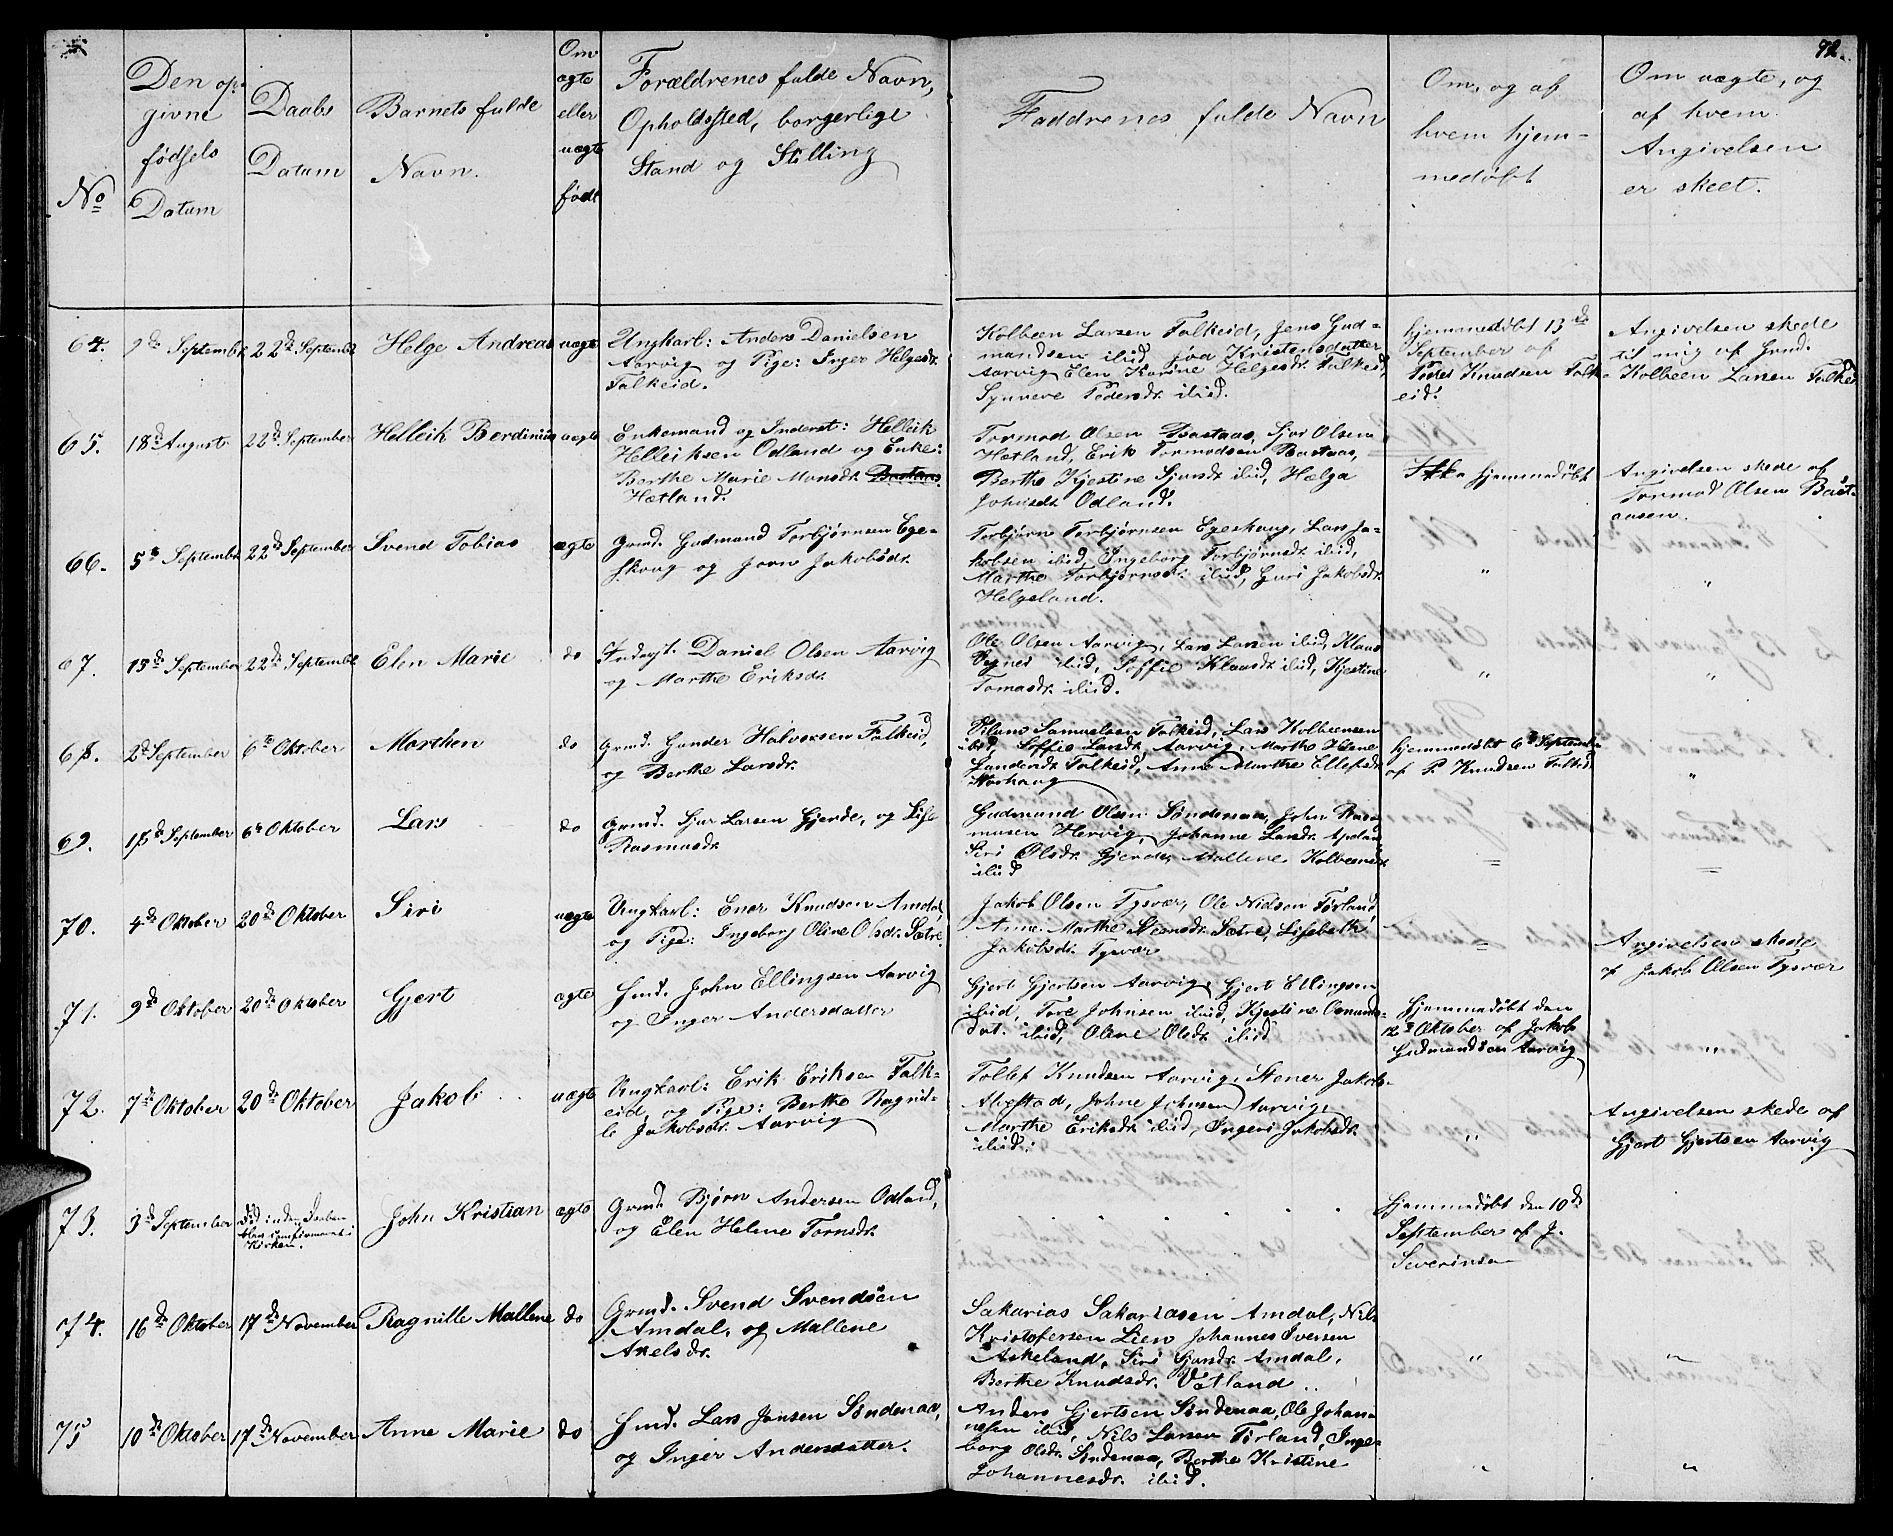 72.
No
Den op-
givne
fødsels
Datum
Daabs
Datum
Barnets fulde
Navn.
Om
ægte
eller
uægte
født
Forældrenes fulde Navn,
Opholdssted, borgerlige
Stand og Stilling
Faddrenes fulde Navn
Om, og af
hvem hjem-
medøbt
Om uægte, og
af hvem
Angivelsen
er skeet.
64.
9de September
22de September
Helge Andreas
uægte
Ungkarl: Anders Danielsen
Aarvig og Pige: Inger Helgesdr.
Falkeid.
Kolbeen Larsen Falkeid, Jens Gud-
mandsen ibid, Kristensdatter
Aarvig Elen Karine Helgesdr. Falkeid,
Synneve Pedersdr. ibid.
hjemmedøbt 13de
September af
Peder Knudsen Falk-
eid.
Angivelsen skede
til mig af Grmd.
Kolbeen Larsen Falkeid
65.
18de August
22de September
Helleik Berdinius
uægte
Enkemand og Inderst: Helleik
Helleiksen Odland og Enke:
Berthe Marie Monsdr. Bastaas.
Hetland.
Tormod Olsen Bastaas, Sjur Olsen
Hetland, Erik Tormodsen Bastaas,
Berthe Kjestine Sjursdr. ibid, Helga
Johnsdr. Odland.
Ikke hjemmedøbt
Angivelsen skede af
Tormod Olsen Bast-
aasen.
66.
5te September
22de September
Svend Tobias
ægte
Grmd. Gudmund Torbjørnsen Ege-
skoug og Jorn Jakobsdr.
Torbjørn Torbjørnsen Egeskoug, Lars Ja-
kobsen ibid, Ingeborg Torbjørnsdr. ibid,
Marthe Torbjørnsdr. ibid, Guri Jakobsdr.
Helgeland.
"
"
67.
13de September
22de September
Elen Marie
do
Inderst. Daniel Olsen Aarvig
og Marthe Eriksdr.
Ole Olsen Aarvig, Lars Larsen ibid, Klaus
ibid, Soffie Klausdr. ibid, Kjestine
Tomasdr. ibid.
"
"
68.
2de September
6te Oktober
Marthen
do
Grmd. Gunder Halvorsen Falkeid,
og Berthe Larsdr.
Samuelsen Falkeid, Lars Kolbeensen
ibid, Soffie Larsdr. Aarvig, Marthe Helene
Gundersdr. Falkeid, Anne Marthe Ellefsdr.
Storhaug
hjemmedøbt 6te September
af P. Knudsen Falkeid
"
69.
15de September
6te Oktober
Lars
do
Grmd. Sjur Larsen Gjerde, og Lise
Rasmusdr.
Gudmund Olsen Søndenaa, John Ras-
musen Hervig, Johanne Larsdr.
Siri Olsdr. Gjerde, Mallene Kolbeensdr.
ibid
"
"
70.
4de Oktober
20de Oktober
Siri
uægte
Ungkarl: Ener Knudsen Amdal,
og Pige: Ingeborg Oline Olsdr. Sætre.
Jakob Olsen Tysvær, Ole Nielsen Førland,
Anne Marthe Steensdr. Sætre, Lisebeth
Jakobsdr. Tysvær
"
Angivelsen skede
af Jakob Olsen Tysvær
71.
9de Oktober
20de Oktober
Gjert
ægte
Hmd. John Ellingsen Aarvig
og Inger Andersdatter
Gjert Gjertsen Aarvig, Gjert Ellingsen
ibid, Tore Johnsen ibid, Kjestine Osmunds-
dat. ibid, Oline Olsdr. ibid
Hjemmedøbt den
12te Oktober af Jakob
Gudmundsen Aarvig
"
72.
7de Oktober
20de Oktober
Jakob
uægte
Ungkarl: Erik Eriksen Falk-
eid, og Pige: Berthe Ragnil-
le Jakobsdr. Aarvig
Tollef Knudsen Aarvig, Stener Jakobs.
Johne Johnsen Aarvig,
Marthe Eriksdr. ibid, Ingeri Jakobsdr.
ibid.
"
Angivelsen skede af
Gjert Gjertsen Aarvig
73.
3de September
Død inden Daaben
blev confirmeret i
Kirken.
John Kristian
ægte
Grmd. Bjørn Andersen Odland,
og Elen Helene Tornsdr.
Hjemmedøbt den 10de
September af J.
Severinsen
74.
16de Oktober
17de November
Ragnille Mallene
do
Grmd. Svend Svendsen
Amdal, og Mallene
Axelsdr.
Sakarias Sakariasen Amdal, Nils
Kristofersen Lien, Johannes Iversen
Askeland, Siri Gjersdr. Amdal,
Berthe Knudsdr. Vatland.
"
"
75
10de Oktober
17de November
Anne Marie
do
Hmd. Lars Jansen Søndenaa,
og Inger Andersdatter.
Anders Gjertsen Søndenaa, Ole Johan-
nesen ibid, Nils Larsen Førland, Inge-
borg Olsdr. Søndenaa, Berthe Kristine
Johannesdr. ibid.
"
"